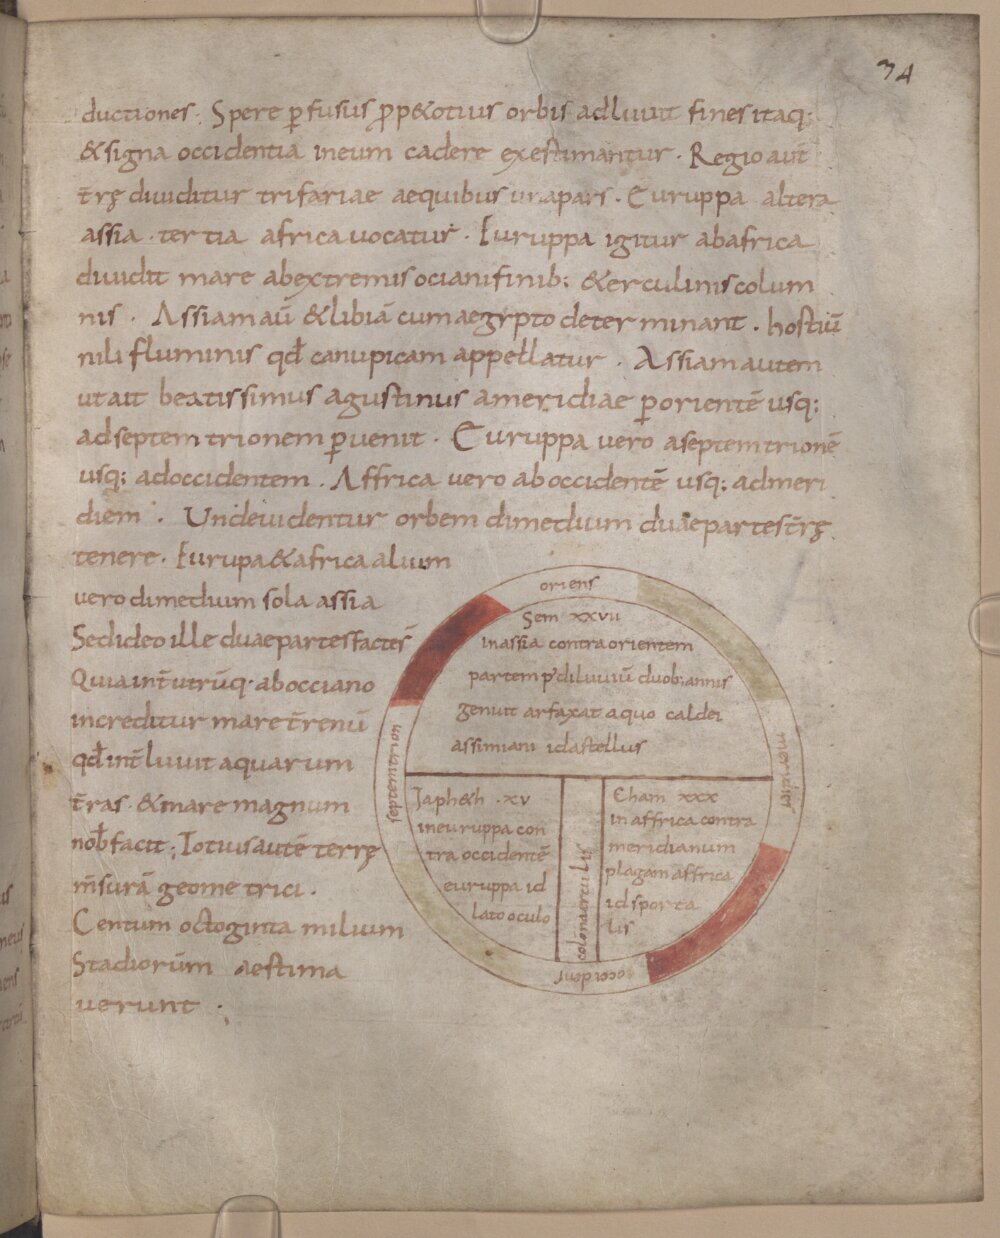 34
ductiones. Spere ꝑfusus ꝓp&otius orbis adluuit fines itaq;
&signa occidentia ineum cadere exestimantur. Regio aut̄
t̄rę diuiditur trifariae aequibus unapars. Euruppa altera
assia. tertia africa uocatur. Euruppa igitur abafrica
diuidit mare abextremis ocianifinib; &erculinis colum
nis. Assiamaū &libiā cumaegypto determinant. hostiū
nili fluminis qđ canupicam appellatur. Assiamautem
utait beatissimus agustinus ameridiae ꝑorientē usq;
adseptemtrionem ꝑuenit. Euruppa uero aseptemtrionē
usq; adoccidentem. Affrica uero aboccidentē usq; admeri
diem. Undeuidentur orbem dimedium duaepartes t̄rę
tenere. Eurupa&africa alium
uero dimedium sola assia
Sedideo ille duaepartes factes̄
Quia int̄ utrūq. abocciano
increditur mare t̄renū
qđ int̄ luuit aquarum
t̄ras. &mare magnum
nob̄ facit; Totius autē terrę
m̄surā geometrici.
Centum octoginta milium
Stadiorum aestima
uerunt.
oriens
Sem xxvii
inassia contraorientem
partem pꝰ diluuiū duob; annis
genuit arfaxat aquo caldei
assimiani id astellus
septemtrion
meridies
Iaph&h. xv
ineuruppa con
tra occidentē
euruppa id
lato oculo
colōna erculis
Cham xxx
in affrica contra
meridianum
plagam affrica
id sporta
lis
occident